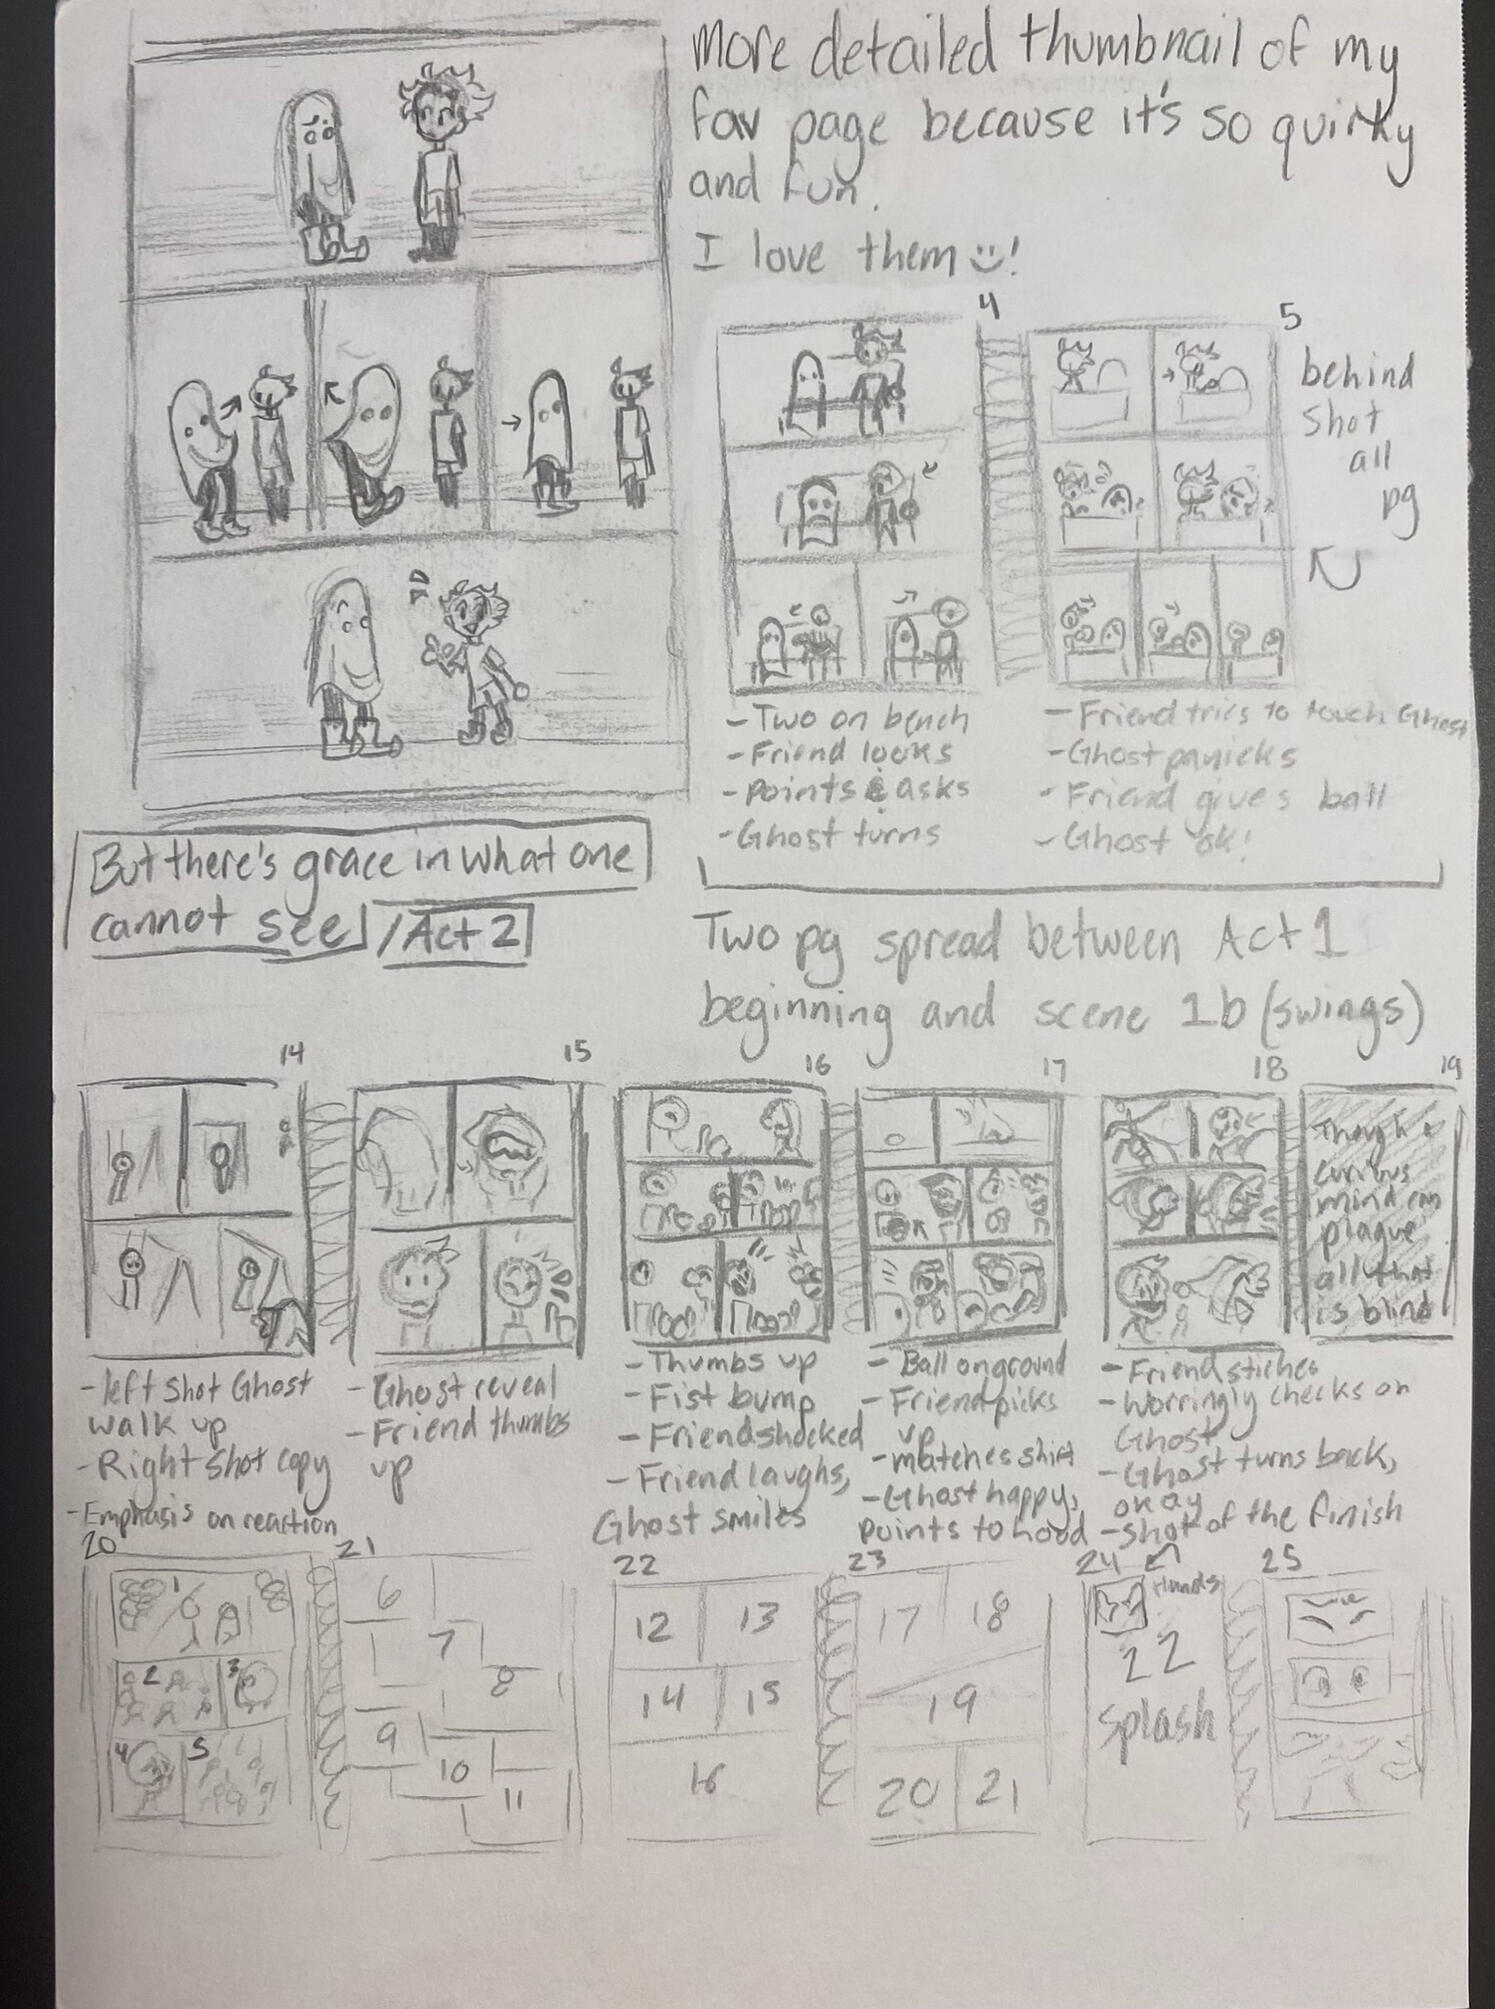 more detailed thumbnail of my
fav page because it's so quirky
and fun.
I love them :)!
4
5
behind
shot
all
pg
- Two on bench
- Friend looks
- Points & asks
- Ghost turns
- Friend tries to touch Ghost
- Ghost panicks
- Friend gives ball
- Ghost ok!
But there's grace in what one
cannot see / Act 2
Two pg spread between Act 1
beginning and scene 1b (swings)
14
15
16
17
18
19
Though a
curious
mind can
plague
all that
is blind
- left shot Ghost
walk up
- Right shot copy
- Emphasis on reaction
- Ghost reveal
- Friend thumbs
up
- Thumbs up
- Fist bump
- Friend shocked
- Friend laughs,
Ghost smiles
- Ball on ground
- Friend picks
up
- matches shirt
- Ghost happy,
points to hood
- Friend stiches
- Worringly checks on
Ghost
- Ghost turns back,
okay
- Shot of the finish
20
1
2
3
4
5
21
6
7
8
9
10
11
22
12
13
14
15
16
23
17
18
19
20
21
24
Hands
22
splash
25